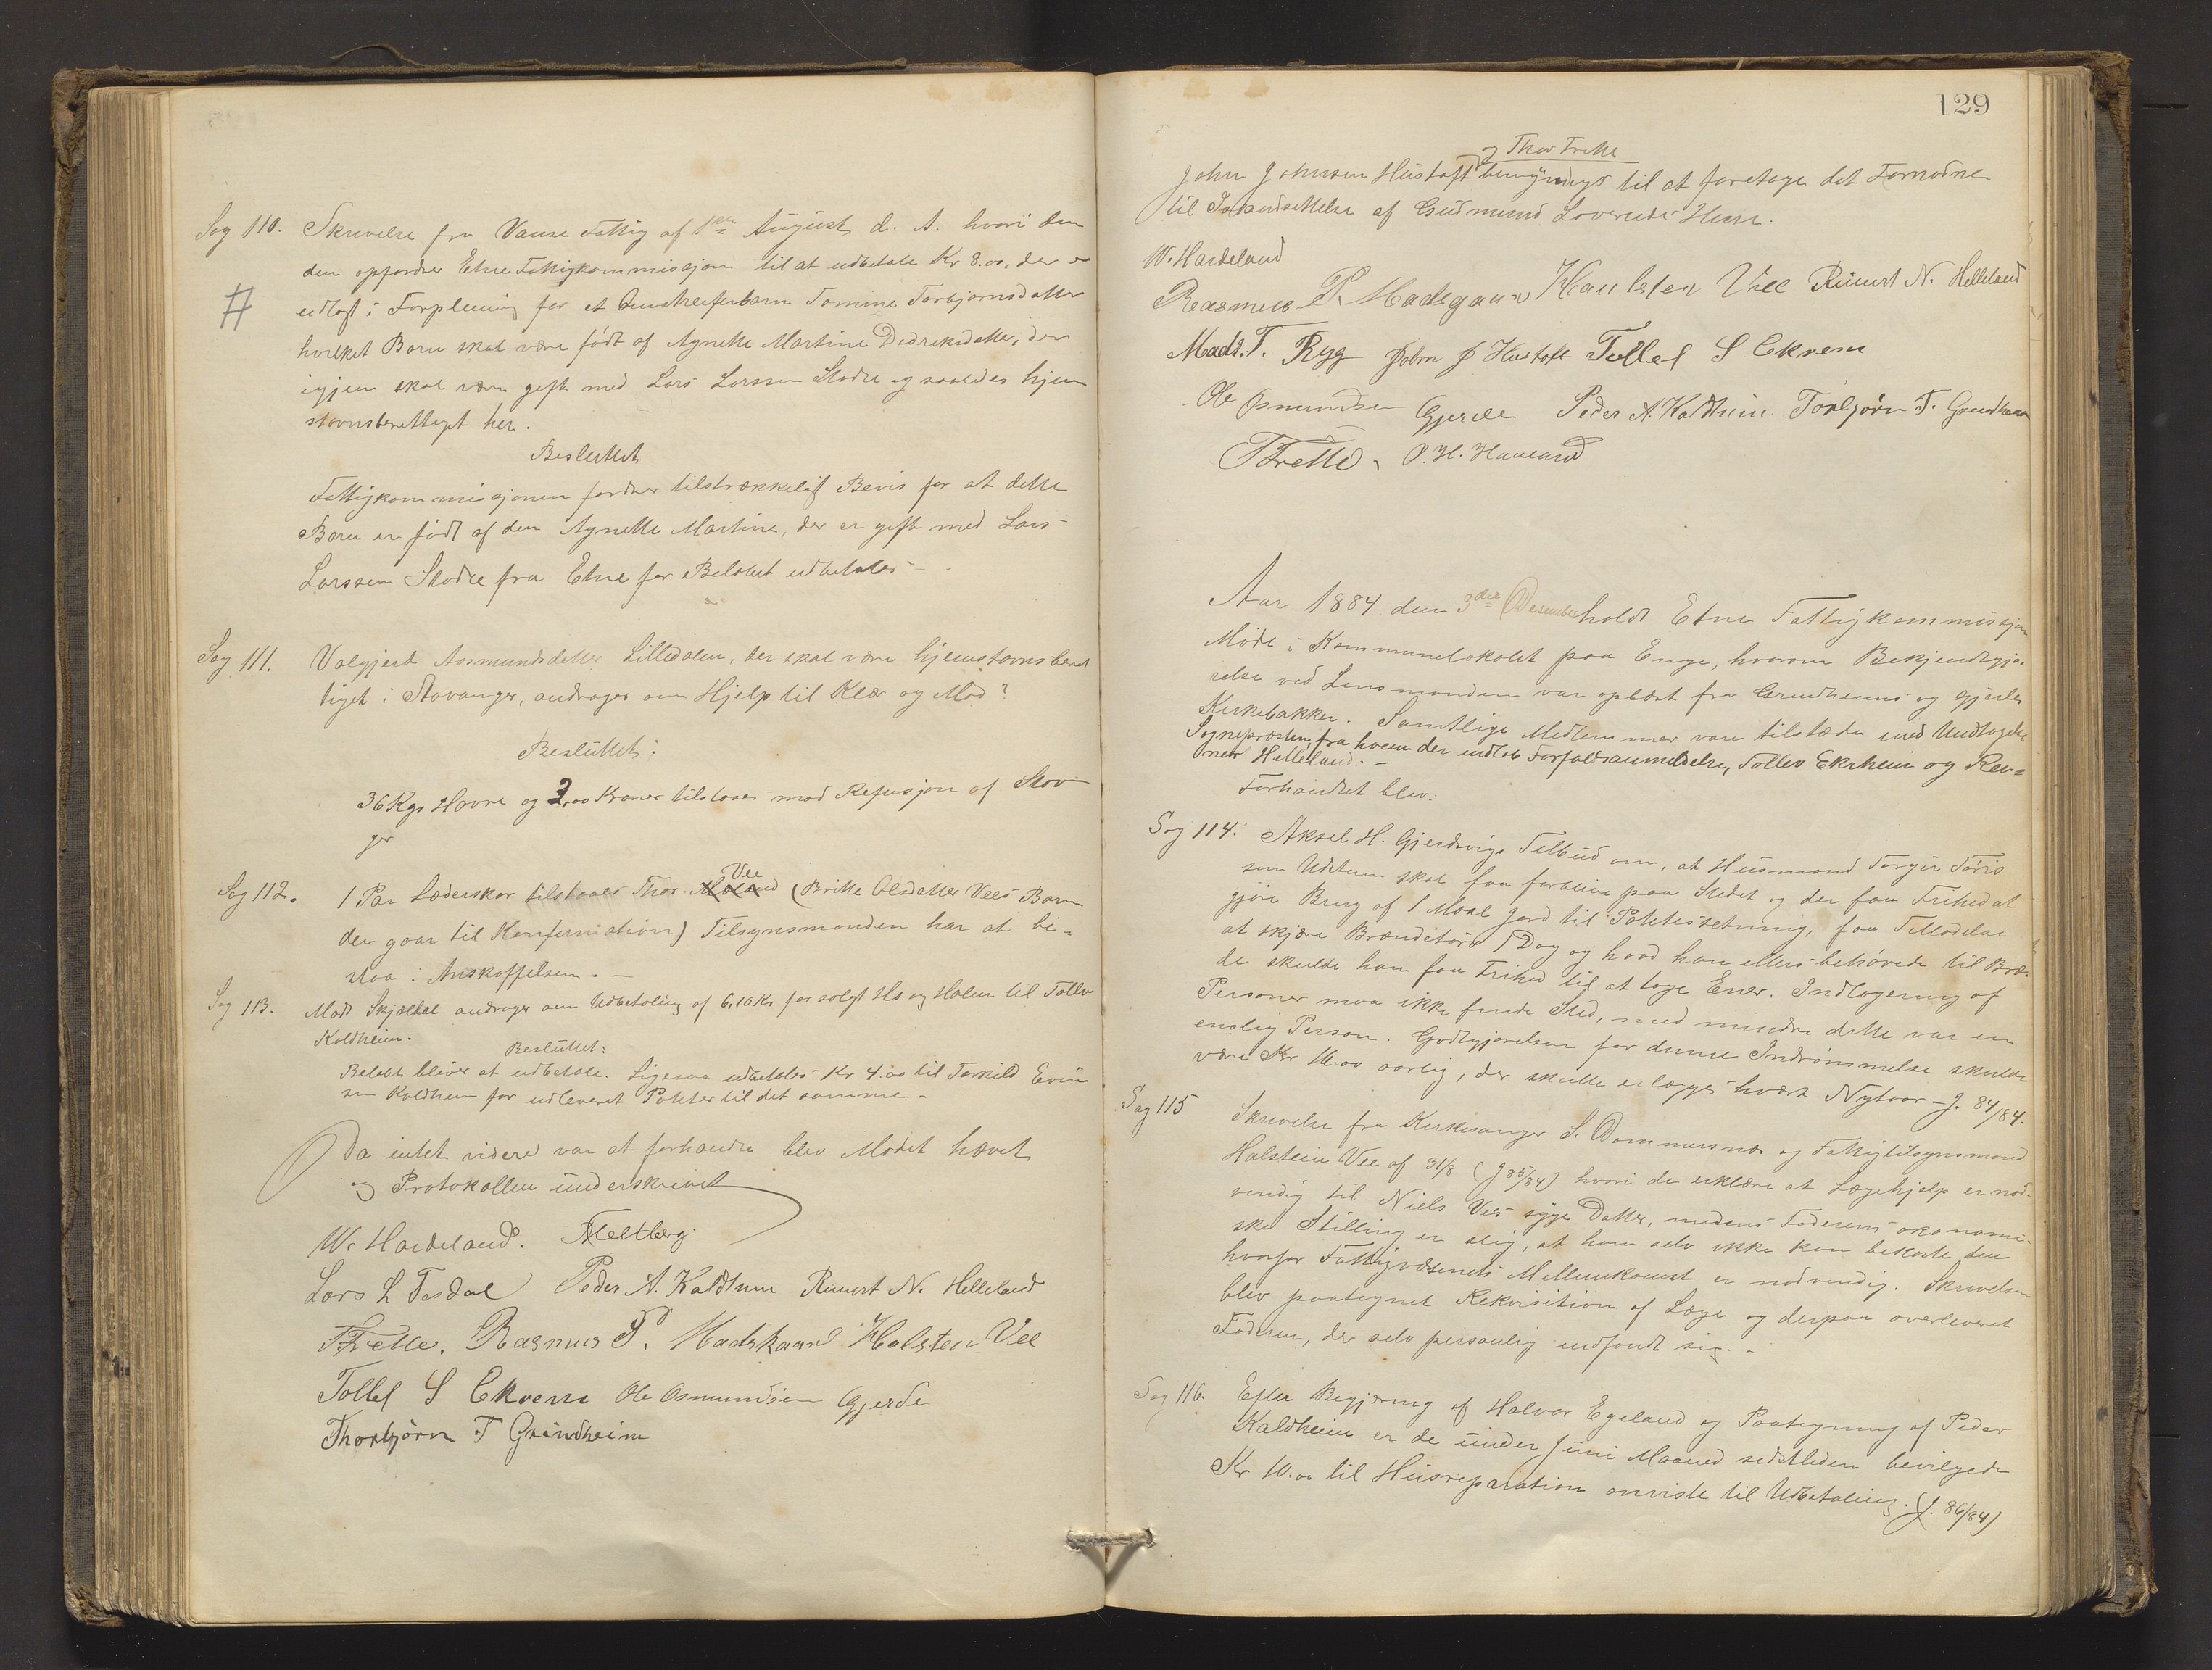 Sag 110. Skrivelse fra Vanse Fattig af 1ste August d. A. hvori den
den opfordrer Etne Fattigkommissjon til at udbetale Kr 8.00, der er
udlagt i Forpleining for et Barn Tomine Torbjørnsdatter
hvilket Barn skal være født af Agnette Martine Didriksdatter, der
igjen skal være gift med Lars Larssen Stødle og saaledes hjem
stavnsberettiget her.
Besluttet
Fattigkommissjonen fordrer tilstrækkeligt Bevis for at dette
Barn er født af den Agnette Martine, der er gift med Lars
Larssen Stødle fra Etne før Beløbet udbetales -
Sag 111. Valgjerd Aasmundsdatter Lilledalen, der skal være hjemstavnsberet
tiget i Stavanger, andrager om Hjelp til Klær og Mad?
Besluttet:
36 Kgr Havre og 2,00 Kroner tilstaaes mod Refusjon af Stav
ger
Vee
Sag 112. 1 Par Læderskor tilstaaes Thor (Britte Olsdatter Vees Barn
der gaar til Konfirmation) Tilsynsmanden har at bi-
staa i Anskaffelsen. -
Sag 113. Mads Skjoldal andrager om Udbetaling af 6,10 Kr for solgt Hø og Halm til Tollev
Kaldheim.
Besluttet:
Beløbet bliver at udbetale. Ligesaa udbetales Kr 4.00 til Torkild Evin
sen Kaldheim for udleveret Poteter til det samme -
Da intet videre var at forhandle blev Mødet hævet
og Protokollen underskrevet
W. Hardeland. Meltberg
Lars L Tesdal Peder A. Kaldheim Reinert N. Helleland
TFrette. Rasmus P. Madskaar Halsten Vee
Tollef S Ekrem Ole Osmundsen Gjerde
Thorbjørn T Grindheim
129
og Thor Frette
John Johnsen Hustoft bemyndiges til at foretage det Fornødne
til Istandsættelse af Gudmund Løveruds Huse.
W. Hardeland
Rasmus P. Madsgaar Haulsten Vee Reinert N. Helleland
Mads. T. Ryg John J Hustoft Tollef S Ekrem
Ole Osmundsen Gjerde Peder A. Kaldheim Torbjørn T. Grindheim
TFrette O. H. Haaland
Aar 1884 den 3die Desember holdt Etne Fattigkommissjon
Møde i Kommunelokalet paa Enge, hvorom Bekjendtgjø-
relse ved Lensmanden var oplæst fra Grindheims og Gjerdes
Kirkebakker. Samtlige Medlemmer vare tilstæde med Undtagelse
Sognepræsten, fra hvem der indløb Forfaldsanmeldelse, Tollev Ekrheim og Rei-
nert Helleland. -
Forhandlet blev:
Sag 114. Aksel H. Gjerdsvigs Tilbud om, at Husmand Torger Tøris
sen Udstun skal faa forblive paa Stedet og der faa Frihed at
gjøre Brug af 1 Maal Jord til Potetessetning, faa Tilladelse
at skjære Brændetørv 1 Dag og hvad han ellers behøvede til Bræn-
de skulde han faa Frihed til at tage Ener. Indlagering af
Personer maa ikke finde Sted, med mindre dette var en
enslig Person. Godtgjørelsen for denne Indrømmelse skulde
være Kr 16.00 aarlig, der skulle erlægges hvært Nytaar - J. 84/84.
Sag 115 Skrivelse fra Kirkesanger S. Dommersnes og Fattigtilsynsmand
Halstein Vee af 31/8 (J 85/84) hvori de erklære at Lægehjelp er nød-
vendig til Niels Vees syge Datter, medens Faderens økonomi-
ske Stilling er slig, at han selv ikke kan bekoste den
hvorfor Fattigvæsenets Mellemkomst er nødvendig. Skrivelsen
blev paategnet Rekvisition af Læge og derpaa overleveret
Faderen, der selv personlig indfandt sig. -
Sag 116. Efter Begjæring af Halvor Egeland og Paategning af Peder
Kaldheim er de under Juni Maaned sidstleden bevilgede
Kr 10.00 til Husreparation anviste til Udbetaling. (J. 86/84)